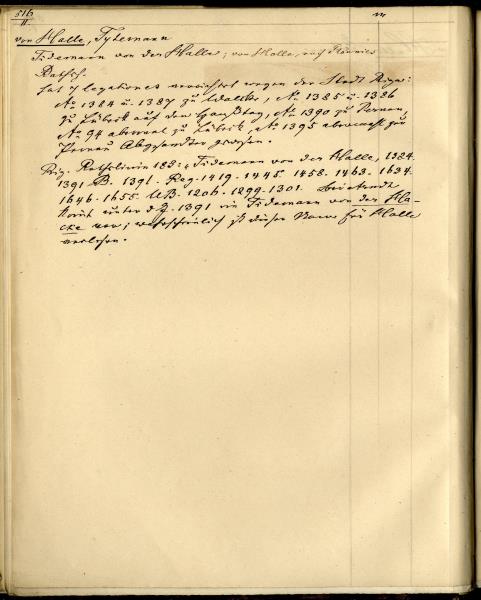 516
II
m
von Halle, Tydemann
Tidemann von der Halle; von Halle, nach
Rathsh.
hat 7 legationes verrichtet wegen der Stadt Riga:
Ao 1384 u. 1387 zu Walck, Ao 1385 u. 1386
zu Lübeck auf den Hansetag, Ao 1390 zu Pernau,
Ao 94 abermal zu Lübeck, Ao 1395 abermals zu
Pernau Abgesandter gewesen.
Rig. Rathslinie 183: Tidemann von der Halle, 1384.
1391. B. 1391. Reg. 1419. 1445. 1458. 1463. 1634.
1646. 1655. UB. 1206. 1299. 1301.
kommt unter d. J. 1391 ein Tidemann von der Ha-
cke vor; wahrscheinlich ist dieser Name für Halle
verlesen.